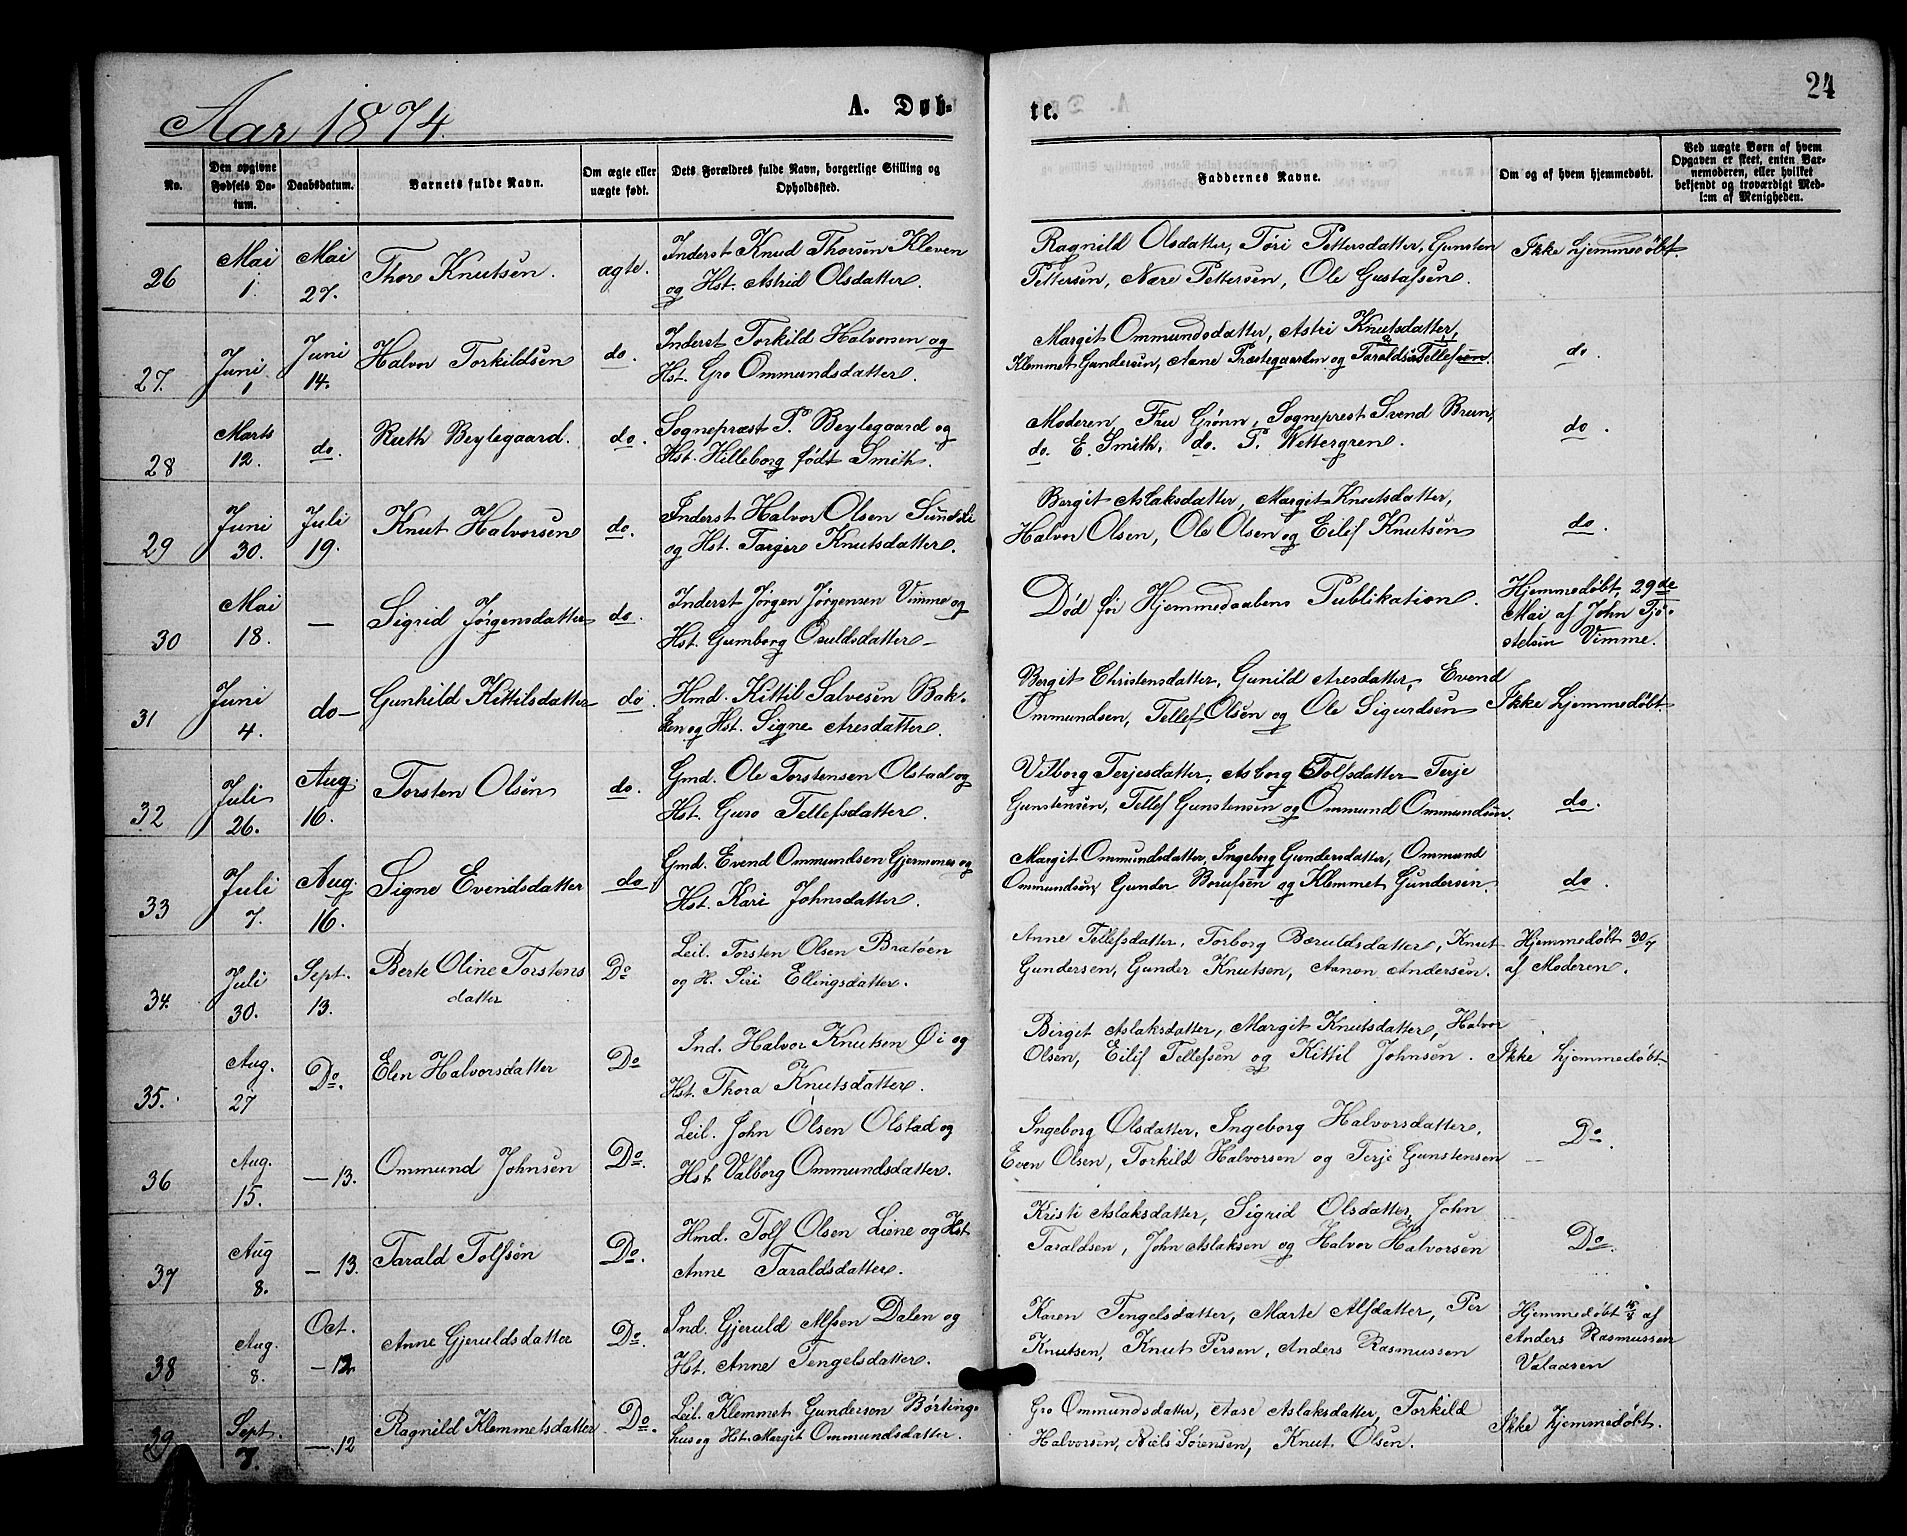 24
Aar 1874.
A. Døb-
te.
No.
Den opgivne Fødsels Da-tum.
Daabsdatum.
Barnets fulde Navn.
Om ægte eller uægte født.
Dets Forældres fulde Navn, borgerlige Stilling og Opholdssted.
Faddernes Navne.
Om og af hvem hjemmedøbt.
Ved uægte Børn af hvem Opgaven er skeet, enten Bar-nemoderen, eller hvilket bekjendt og troværdigt Med-lem af Menigheden.
26
Mai 1.
Mai 27.
Thore Knutsen.
ægte.
Inderst Knud Thorsen Kleven
og Hst. Astrid Olsdatter.
Ragnild Olsdatter, Tøri Pettersdatter, Gunsten
Pettersen, Nære Pettersen, Ole Gustafsen.
Ikke hjemmedøbt.
27.
Juni 1
Juni 14.
Halvor Torkildsen
do.
Inderst Torkild Halvorsen og
Hst. Gro Ommundsdatter.
Margit Ommundsdatter, Astri Knutsdatter,
Klemmet Gundersen, Aane Præstegaarden og Taraldsen Tellefsen.
do.
28
Marts 12.
do.
Ruth Beylegaard.
do.
Sognepræst P. Beylegaard og
Hst. Hilleborg født Smith.
Moderen, Fru Grønn, Sogneprest Svend Brun,
do. E. Smith, do. P. Wettergren.
do.
29
Juni 30.
Juli 19.
Knut Halvorsen
do.
Inderst Halvor Olsen Sundsli
og Hst. Targer Knutsdatter.
Bergit Aslaksdatter, Margit Knutsdatter,
Halvor Olsen, Ole Olsen og Eilif Knutsen
do.
30
Mai 18.
—
Sigrid Jørgensdatter
do.
Inderst Jørgen Jørgensen Vimme og
Hst. Gumborg Osuldsdatter —
Død før Hjemmedaabens Publikation.
Hjemmedøbt, 29de
Mai af John Tjø-
stelsen Vimme.
31
Juni 4.
do—
Gunhild Kittilsdatter
do.
Hmd. Kittil Salvesen Bak-
ken og Hst. Signe Aresdatter.
Bergit Christensdatter, Gunild Aresdatter, Evend
Ommundsen, Tellef Olsen og Ole Sigurdsen
Ikke hjemmedøbt.
32
Juli 26.
Aug. 16.
Torsten Olsen
do.
Gmd. Ole Torstensen Olstad og
Hst. Guro Tellefsdatter.
Vilborg Terjesdatter, Asborg Tolfsdatter Terje
Gunstensen, Tellef Gunstensen og Ommund Ommundsen.
do.
33
Juli 7.
Aug. 16.
Signe Evendsdatter
do
Gmd. Evend Ommundsen Gjermones og
Hst. Kari Johnsdatter.
Margit Ommundsdatter, Ingeborg Gundersdatter, Ommund
Ommundsen, Gunder Borufsen og Klemmet Gundersen.
do.
34.
Juli 30.
Sept. 13.
Berte Oline Torstens
datter
Do
Leil. Torsten Olsen Bratøen
og H. Siri Ellingsdatter.
Anne Tellefsdatter, Torborg Bæruldsdatter, Knut
Gundersen, Gunder Knutsen, Aanon Andersen.
Hjemmedøbt 30/7
af Moderen.
35.
Aug. 27
Do.
Elen Halvorsdatter
Do
Ind. Halvor Knutsen Øi og
Hst. Thora Knutsdatter.
Birgit Aslaksdatter, Margit Knutsdatter, Halvor
Olsen, Eilif Tellefsen og Kittil Johnsen.
Ikke hjemmedøbt
36
Aug. 15.
— 13.
Ommund Johnsen
Do.
Leil. John Olsen Olstad og
Hst Valborg Ommundsdatter.
Ingeborg Olsdatter, Ingeborg Halvorsdatter,
Even Olsen, Torkild Halvorsen og Terje Gunstensen
Do.
37
Aug 8.
— 13.
Tarald Tolfsen
Do.
Hmd. Tolf Olsen Liene og Hst
Anne Taraldsdatter.
Kristi Aslaksdatter, Sigrid Olsdatter, John
Taraldsen, John Aslaksen og Halvor Halvorsen
Do.
38
Aug. 8.
Oct. — 12
Anne Gjeruldsdatter
Do.
Ind. Gjeruld Alfsen Dalen og
Hst. Anne Tengelsdatter.
Karen Tengelsdatter, Marte Alfdatter, Per
Knutsen, Knut Persen, Anders Rasmussen
Hjemmedøbt af
Anders Rasmussen
Valaasen
39
Sept. 7.
—. 12
Ragnild Klemmetsdatter
Do.
Leil. Klemmet Gunderson Børting-
hus og Hst. Margit Ommundsdatter.
Gro Ommundsdatter, Aase Aslaksdatter, Torkild
Halvorsen, Niels Sørensen, Knut Olsen.
Ikke hjemmedøbt.